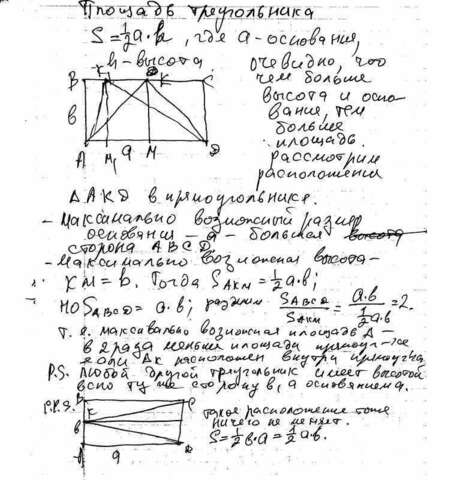 Площадь треугольника
S=½a·h, где a-основание,
h-высота.
очевидно, что
чем больше
высота и осно-
вание, тем
больше
площадь.
рассмотрим
расположения
B K C
в
A M₁ a M D
Δ AKD в прямоугольнике.
- Максимально возможный размер
основания - a - большая высота
сторона ABCD
- Максимально возможная высота-
KM = b. Тогда S_AKM = ½a·b;
но S_ABCD = a·b; S_ABCD / S_AKM = a·b / ½a·b = 2.
Т.е. максимально возможная площадь Δ-
в 2 раза меньше площади
если Δк расположен внутри
P.S. Любой другой треугольник имеет высотой
всю ту же сторону b, а основанием a.
P.P.S.
B C
K
в
A a D
такое расположение тоже
ничего не меняет.
S=½b·a=½a·b.